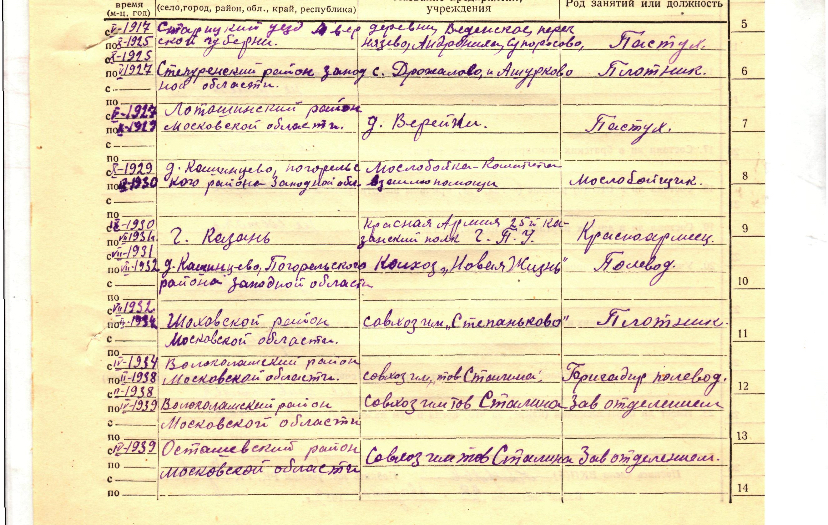 время (м-ц, год) (село, город, район, обл., край, республика) учреждения Род занятий или должность
с -1917 Старицкий уезд Твер деревни, Веденское, 5
по X-1925 ской губерни. Андрониха, Пастух.
с X-1925
по 1927 район запод с. Дрожалово, и Ашурково Плотник. 6
с ной области.
по
с -1927 Лоташинский район
по -1929 Московской области. д. Верейки. Пастух. 7
с
по
с X-1929 д. Кашинцево, погорельс Мослобойка-Комитета
по -1930 кого района Заподной обл. взаимопомощи Мослобойщик. 8
с
по
с -1930 Красная Армия 25й Ка-
по VII-1931 г. Казань занский полк Г. П. У. Красноармеец. 9
с VII-1931
по -1932 д. Кашинцево, Погорельского Колхоз „Новая Жизнь" Полевод. 10
с района западной области
по
с -1932
по -1934 Шаховской район совхоз им. „Степаньково" Плотник. 11
с Московской области.
по
с -1934 Волоколамский район
по -1938 Московской области. совхоз им. тов Сталина. Бригадир полевод. 12
с -1938
по -1939 Волоколамский район совхоз им тов Сталина Зав отделением
с Московской области
по 13
с -1939 Осташевский район
по Московской области Совхоз им тов Сталина Зав отделением.
с
по 14